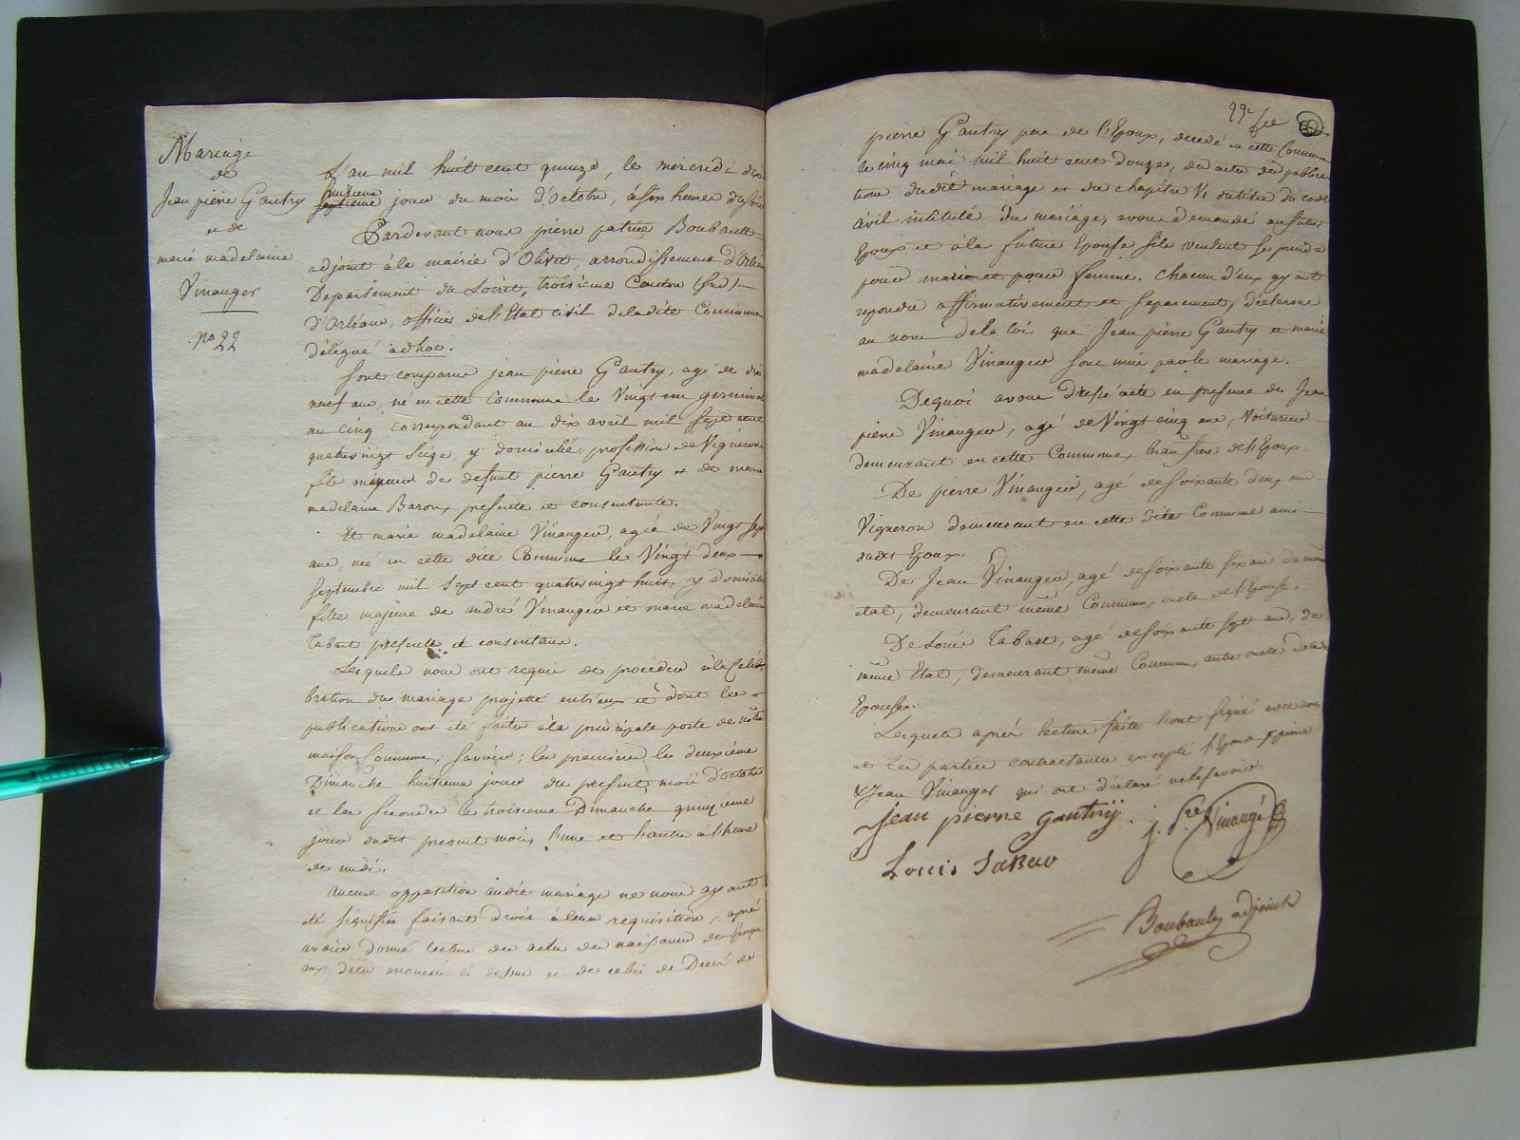 Mariage
de
Jean pierre Gautry
et de
marie madelaine
Vinauger
no 22
L'an mil huit cent quinze, le mercredi dix
huitieme
septieme jour du mois d'Octobre, à six heures du soir
Pardevant nous pierre patrice Boubault
adjoint à la mairie d'Olivet, arrondissement d'Orléans
Departement du Loiret, troisieme Canton (sud)
d'Orléans, officier de l'Etat civil de la dite Commune
délégué ad hoc.
Sont comparus jean pierre Gautry, agé de dix
neuf ans, né en cette Commune le Vingt un germinal
an cinq correspondant au dix avril mil sept cent
quatrevingt seize y domicilié profession de Vigneron
fils mineur de defunt pierre Gautry et de marie
madelaine Baron, presente et consentante.
Et marie madelaine Vinauger, agée de Vingt sept
ans, née en cette dite Commune le Vingt deux
septembre mil sept cent quatrevingt huit, y domiciliée
fille majeure de andré Vinauger et marie madelaine
Tabart presents et consentans.
Lesquels nous ont requis de proceder à la Celé
bration du mariage projetté entr'eux et dont les
publications ont été faites à la principale porte de notre
maison Commune, savoir; les premiere le deuxième
Dimanche huitieme jour du present mois d'octobre
et la seconde le troisieme Dimanche quinzieme
jour dudit present mois, l'une et l'autre a l'heure
de midi.
Aucune opposition audit mariage ne nous ayant
été signifiée faisant droit à leur requisition, après
avoir donné lecture des actes de naissance des époux
aux dates énoncées ci dessus et de celui de Décès de
22e fte
pierre Gautry pere de l'Epoux, decedé en cette Commune
le cinq mai mil huit cent douze, des actes de publica
tions dudit mariage et du chapitre VI du titre du code
civil intitulé du mariage, avons demandé au futur
Epoux et à la future Epouse s'ils veulent se prendre
pour mari et pour femme. Chacun d'eux ayant
repondu affirmativement et separement, déclarons
au nom de la loi que Jean pierre Gautry et marie
madelaine Vinauger sont unis par le mariage.
De quoi avons dressé acte en presence du Jean
pierre Vinauger, agé de Vingt cinq ans, Voiturier
demeurant en cette Commune, beau frere de l'Epoux.
De pierre Vinauger, agé de soixante dix ans
Vigneron demeurant en cette dite Commune ami
dudit Epoux.
De Jean Vinauger, agé de soixante six ans du même
etat, demeurant même Commune, oncle de l'Epouse.
De Louis Tabart, agé de soixante sept ans, du
même Etat, demeurant même Commune, autre oncle de la de
Epouse.
Lesquels après lecture faite l'ont signé avec nous
et les parties contractantes excepté pierre
& Jean Vinauger qui ont declaré ne le savoir
jean pierre Gautry.
j. Pre Vinaugé
Louis TABAU
Boubault adjoint